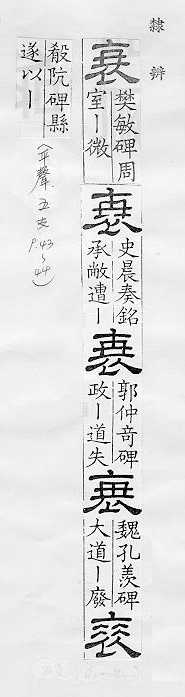 隸辨
衰
樊敏碑周
室｜微
衰
史晨奏銘
承敝遭｜
衰
郭仲奇碑
政｜道失
衰
魏孔羨碑
大道｜廢
衰
殽阬碑縣
遂以｜
(平聲 五支
P.43~44)